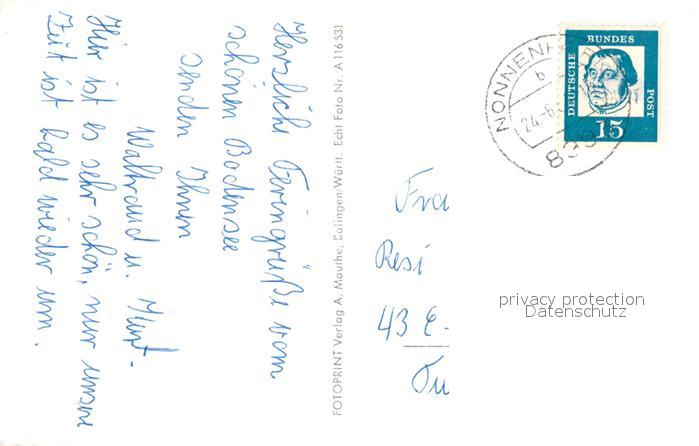 Herzliche Feriengrüße vom
schönen Bodensee
senden Ihnen
Waltraud u. Kurt.
Hier ist es sehr schön, nur unsere
Zeit ist bald wieder um.
FOTOPRINT Verlag A. Mauthe, Balingen/Württ. Echt Foto Nr. A 116 531
DEUTSCHE
BUNDES
POST
15
NONNENH
b
24.-6.
899
Fra
Resi
43 E-
privacy protection
Datenschutz